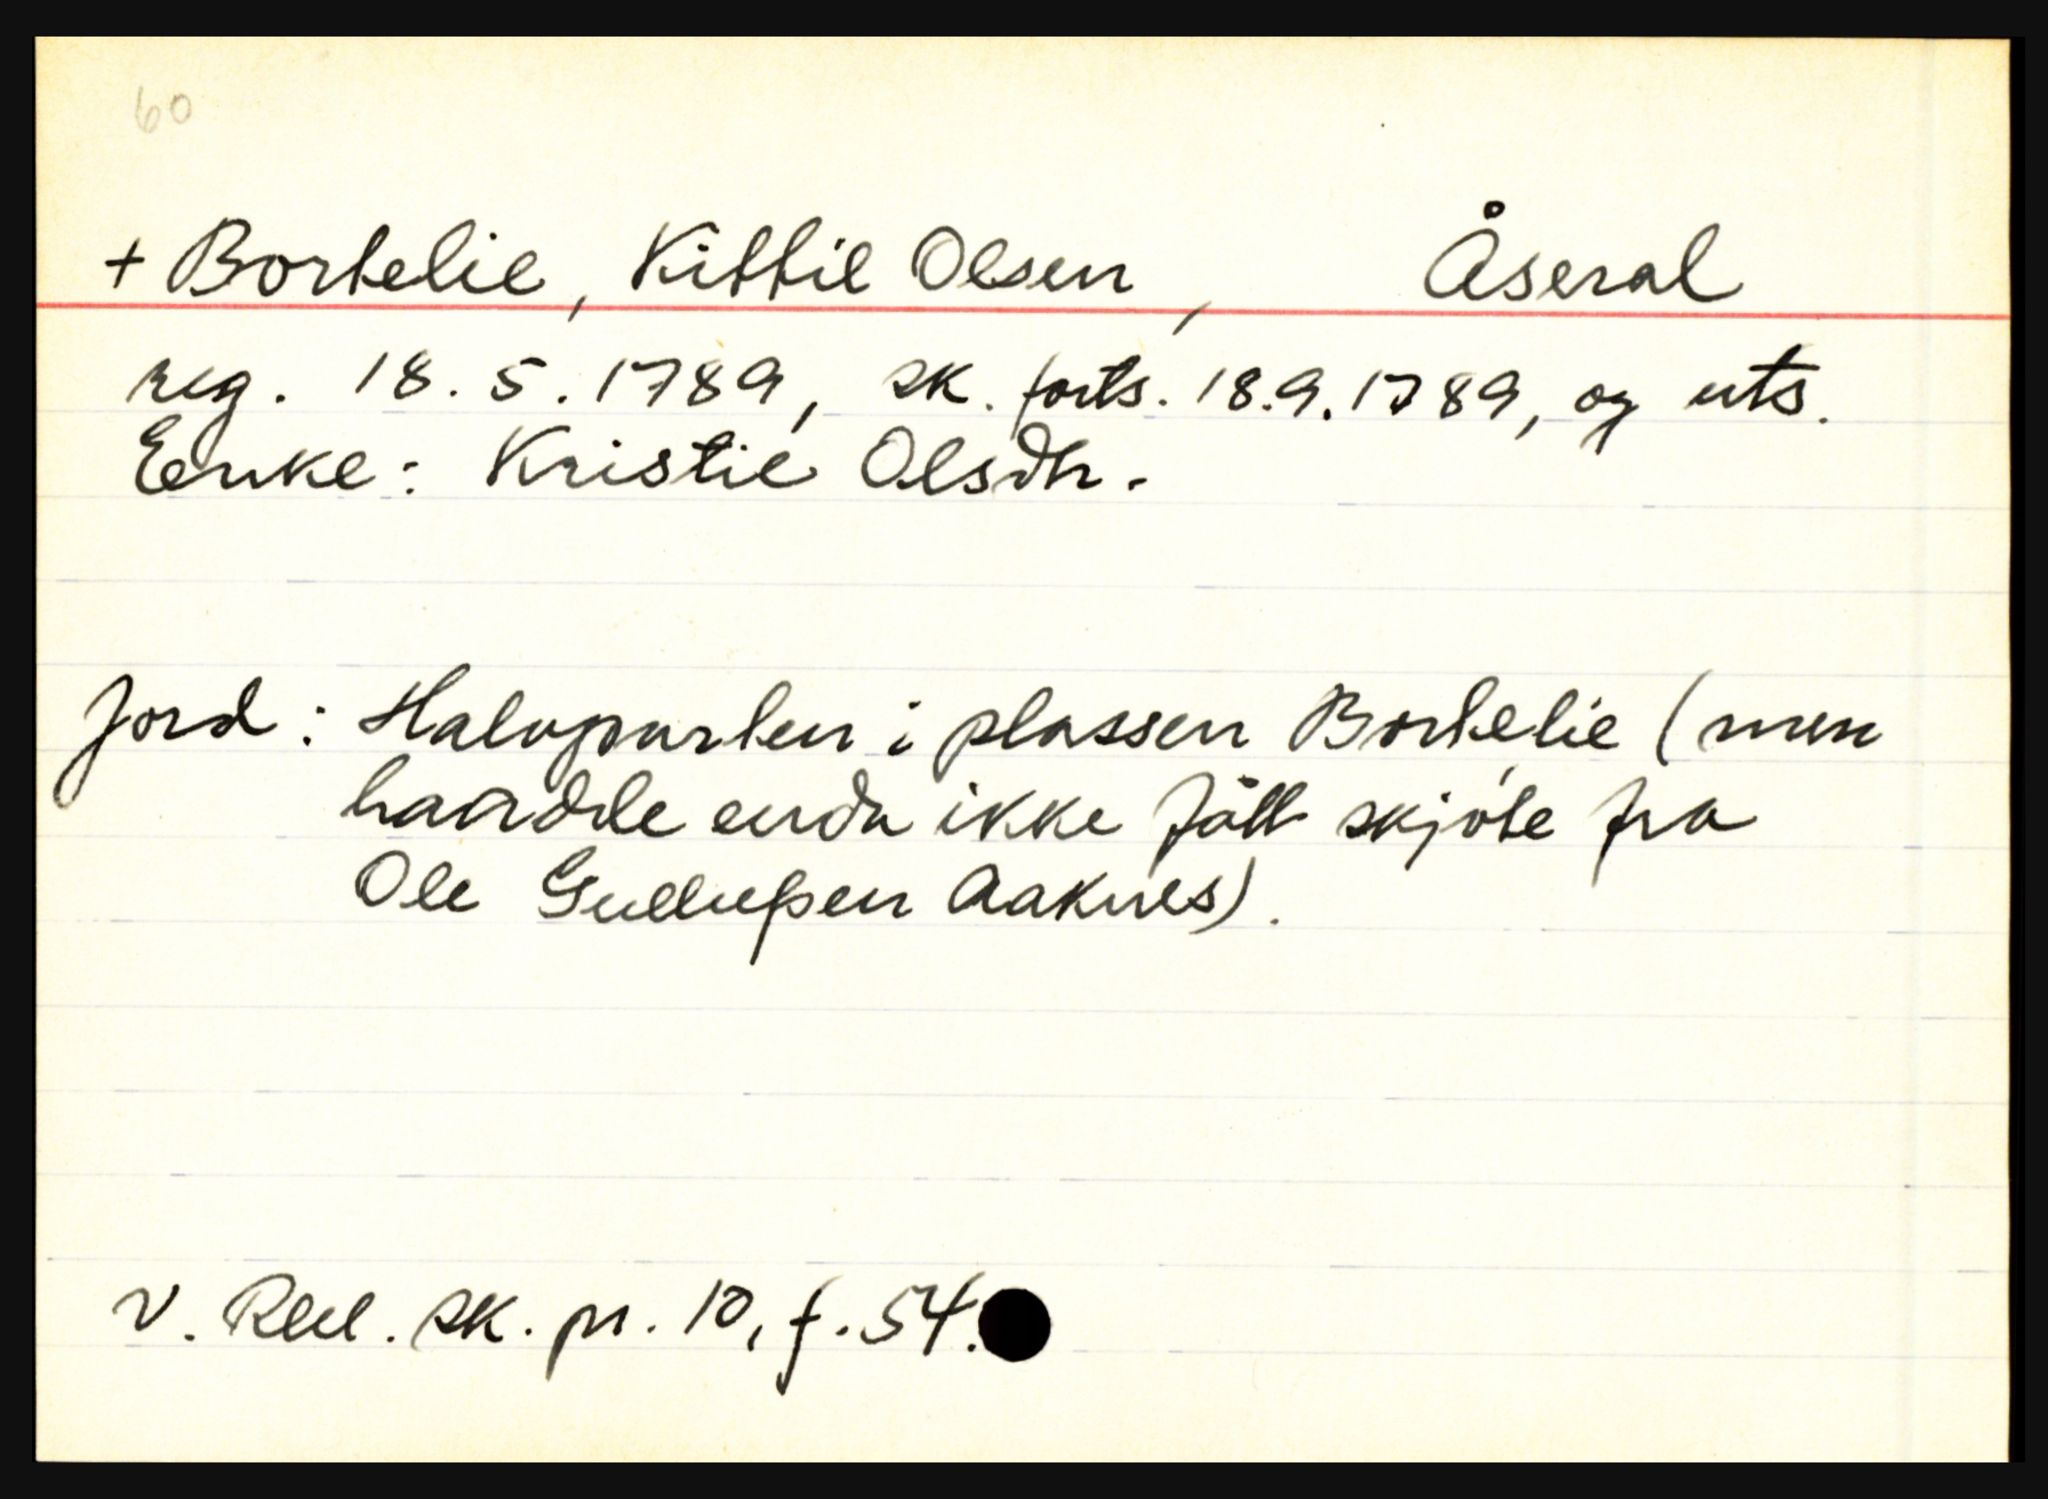 60
+ Bortelie, Kittil Olsen, Åseral
reg. 18.5.1789, sk. forts. 18.9.1789, og uts.
Enke: Kristie Olsdtr.
Jord: Halvparten i plassen Bortelie (men
haadde enda ikke fått skjöte fra
Ole Gullufsen Aaknes).
V. Rbd. sk. pr. 10, f. 54.